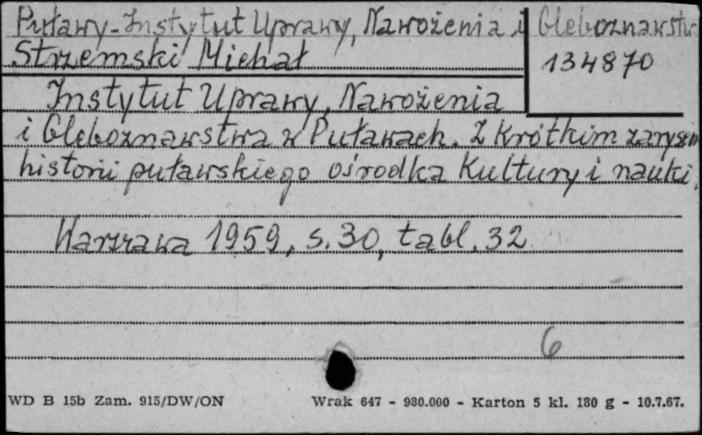 Puławy-Instytut Uprawy, Nawożenia i Gleboznawstwa
Strzemski Michał
134870
Instytut Uprawy, Nawożenia
i Gleboznawstwa w Puławach. Z krótkim zarysem
historii puławskiego ośrodka kultury i nauki.
Warszawa 1959, s. 30, tabl. 32
6
WD B 15b Zam. 915/DW/ON Wrak 647 - 930.000 - Karton 5 kl. 180 g - 10.7.67.